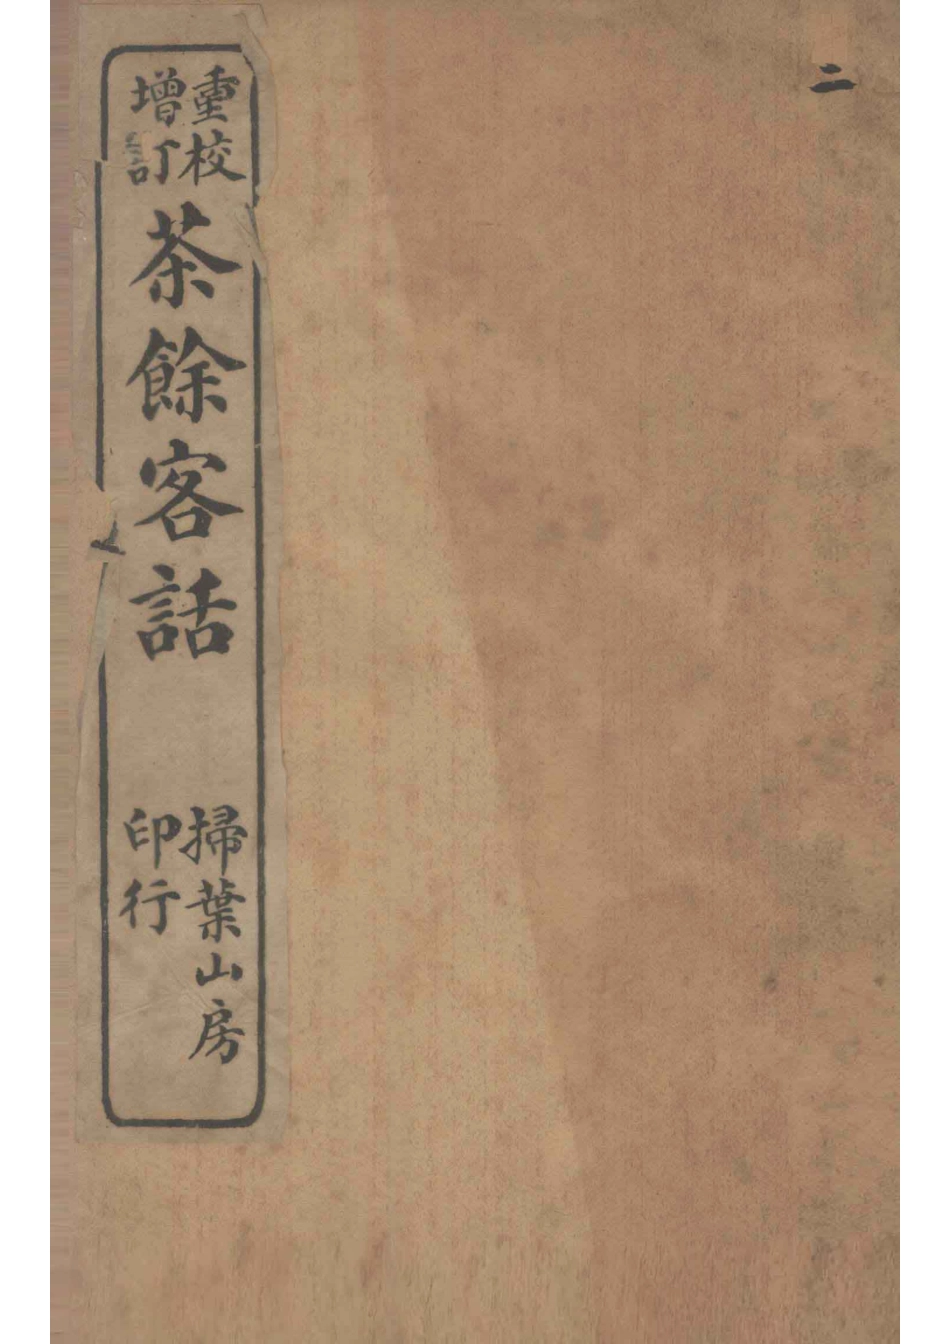 二
重校
增訂
茶餘客話
掃葉山房
印行